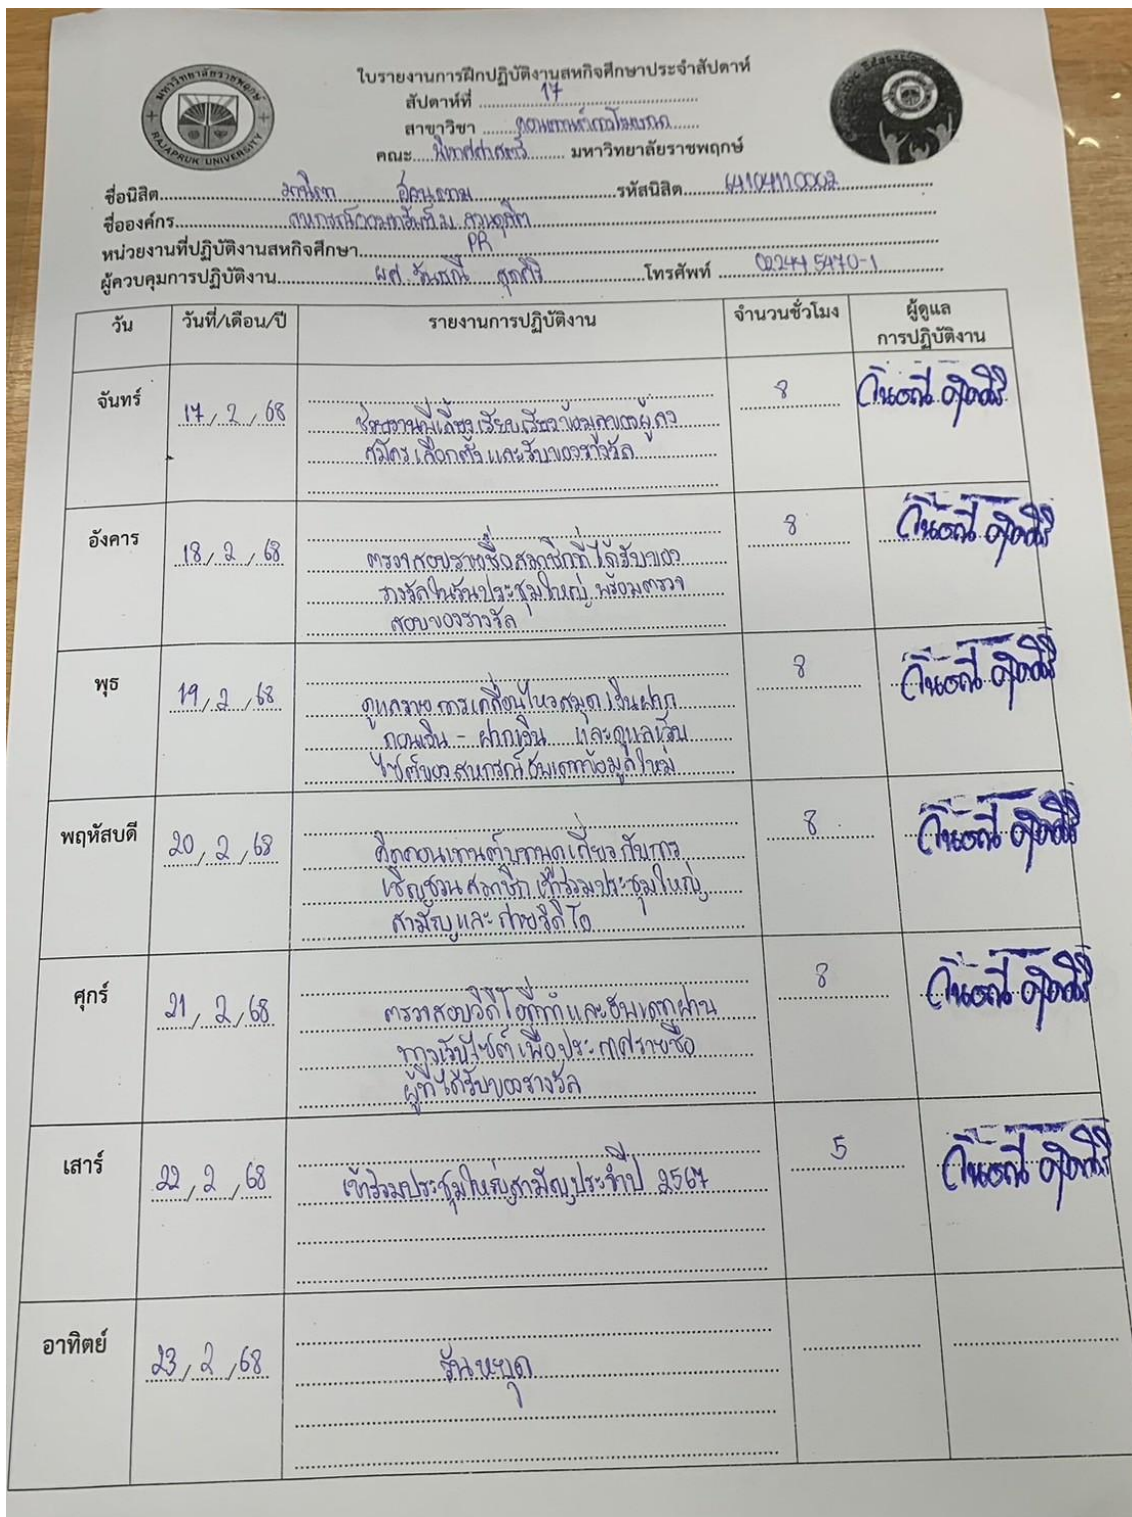 มหาวิทยาลัยราชพฤกษ์
RAJAPRUK UNIVERSITY
ใบรายงานการฝึกปฏิบัติงานสหกิจศึกษาประจำสัปดาห์
สัปดาห์ที่ 17
สาขาวิชา
คณะ นิเทศศาสตร์ มหาวิทยาลัยราชพฤกษ์
ชื่อนิสิต รหัสนิสิต 64104110002
ชื่อองค์กร สหกรณ์ออมทรัพย์ ม. สวนดุสิต
หน่วยงานที่ปฏิบัติงานสหกิจศึกษา PR
ผู้ควบคุมการปฏิบัติงาน ผศ. โทรศัพท์ 02244 5470-1
วัน วันที่/เดือน/ปี รายงานการปฏิบัติงาน จำนวนชั่วโมง ผู้ดูแล
การปฏิบัติงาน
จันทร์ 17 / 2 / 68 8
ช่วยงานพี่เลี้ยง เรียบเรียงข้อมูลของผู้ลง
สมัครเลือกตั้ง และรับของรางวัล
อังคาร 18 / 2 / 68 8
ตรวจสอบรายชื่อสมาชิกที่ได้รับของ
รางวัลในวันประชุมใหญ่ พร้อมตรวจ
สอบของรางวัล
พุธ 19 / 2 / 68 8
ดูแลรายการเคลื่อนไหวสมุดเงินฝาก
ถอนเงิน - ฝากเงิน และดูแลเว็บ
ไซต์ของสหกรณ์อัพเดทข้อมูลใหม่
พฤหัสบดี 20 / 2 / 68 8
คิดคอนเทนต์บทพูดเกี่ยวกับการ
เชิญชวนสมาชิกเข้าร่วมประชุมใหญ่
สามัญและถ่ายวิดีโอ
ศุกร์ 21 / 2 / 68 8
ตรวจสอบวิดีโอที่ทำและอัพเดทผ่าน
ทางเว็บไซต์เพื่อประกาศรายชื่อ
ผู้ที่ได้รับของรางวัล
เสาร์ 22 / 2 / 68 5
เข้าร่วมประชุมใหญ่สามัญประจำปี 2567
อาทิตย์ 23 / 2 / 68
วันหยุด